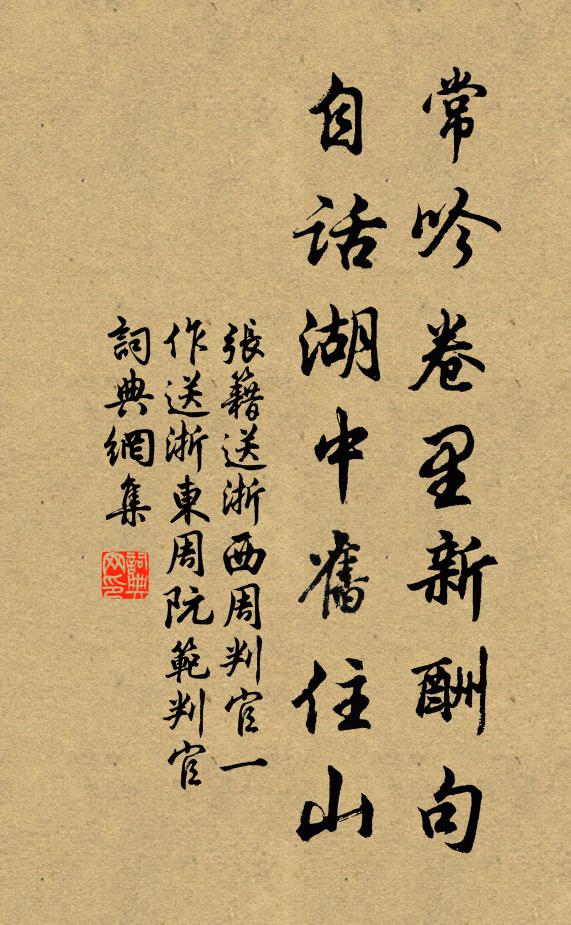 常吟卷里新酬句
自话湖中舊住山
張籍送浙西周判官一
作送浙東周阮範判官
詞典網集
詞典網印